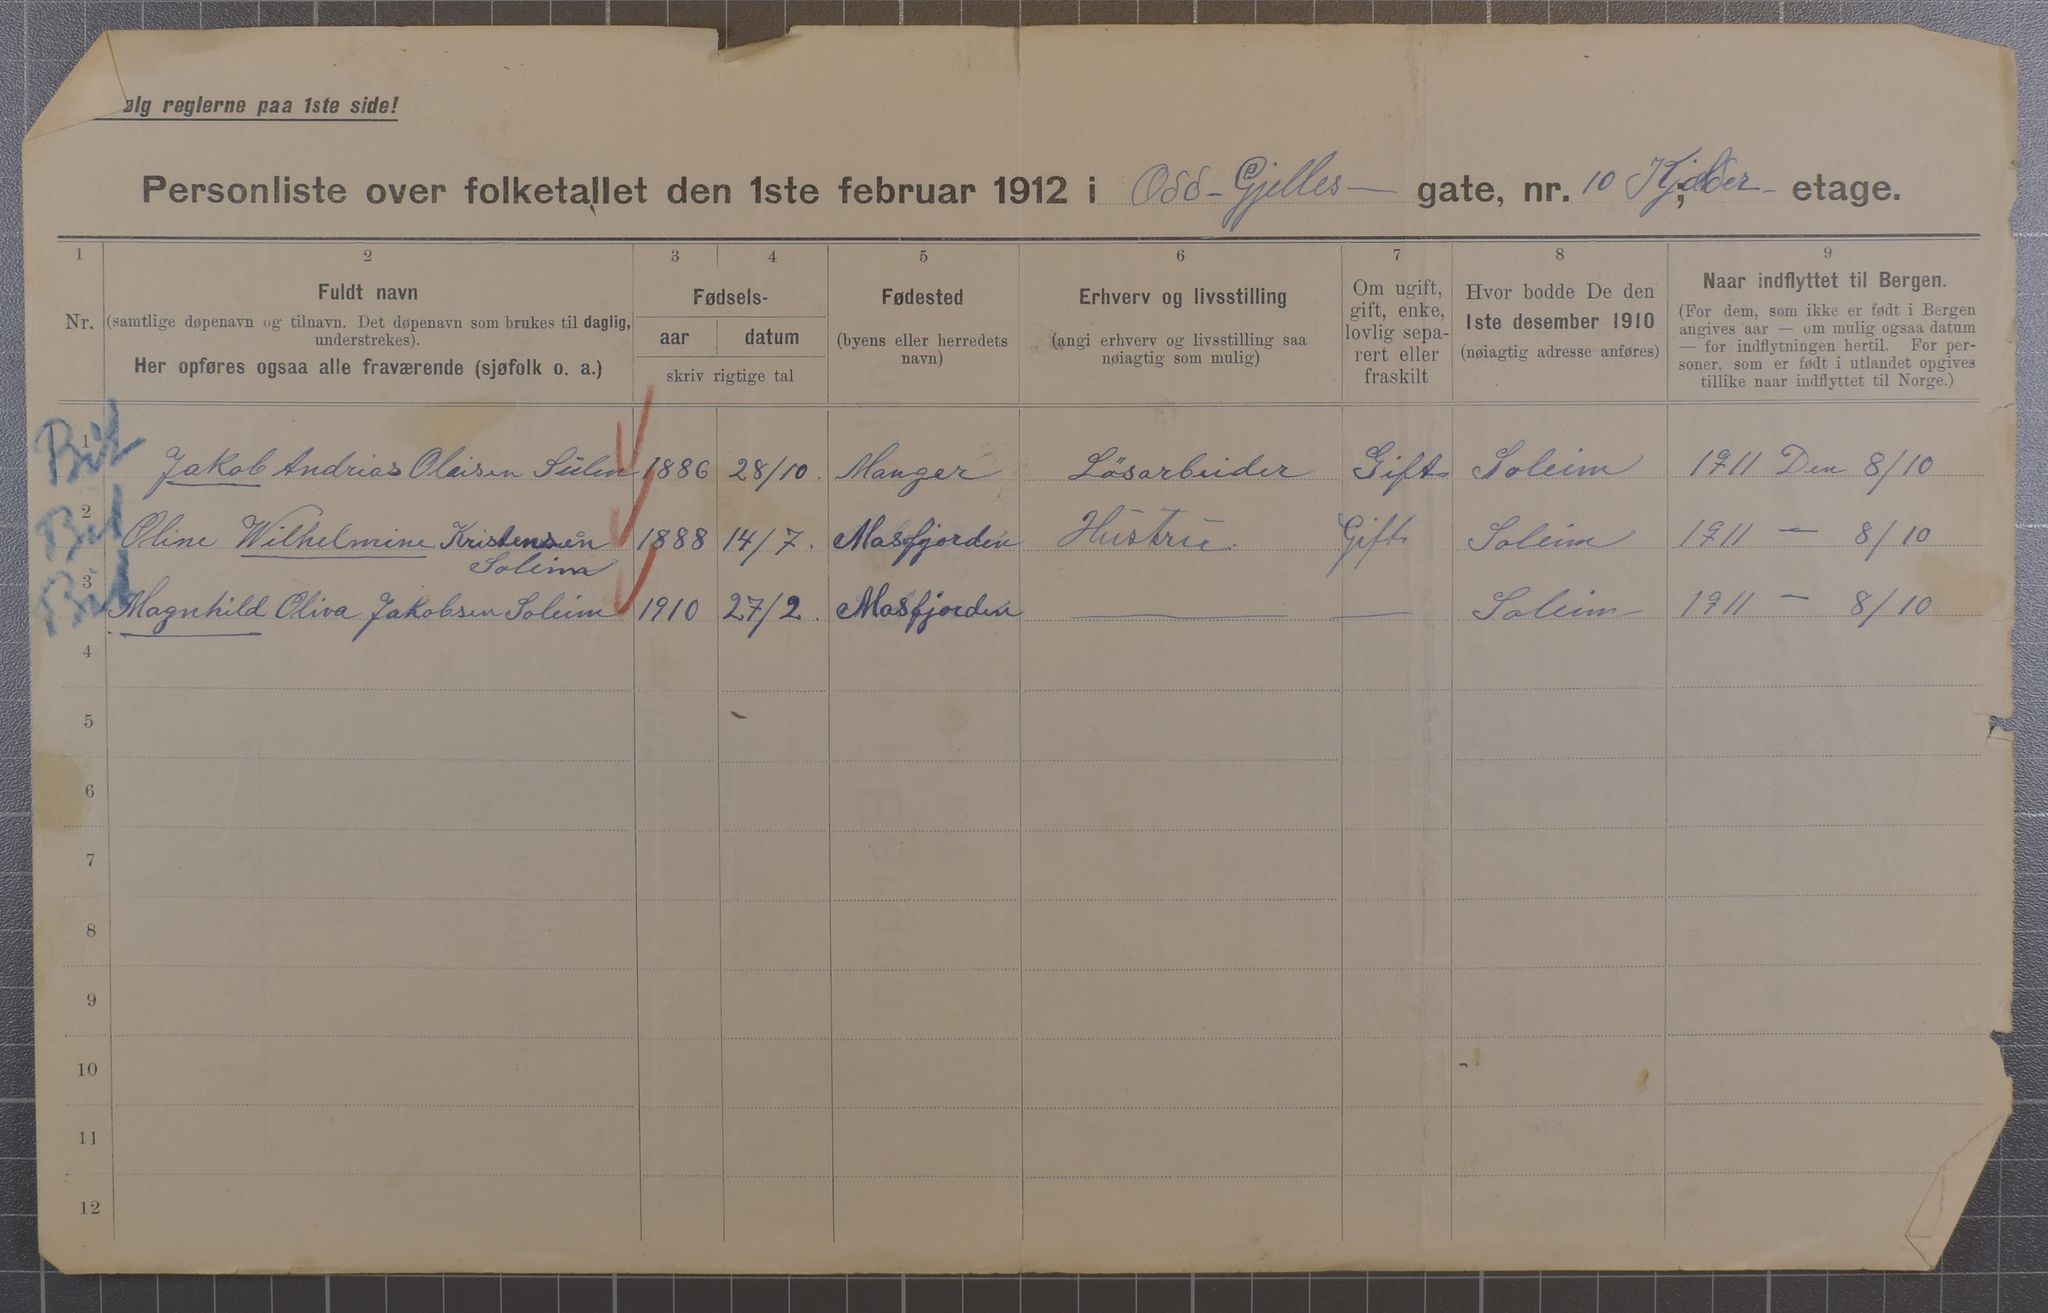 ølg reglerne paa 1ste side!
Personliste over folketallet den 1ste februar 1912 i Odd-Gjelles- gate, nr. 10, Kjelder- etage.
1 2 3 4 5 6 7 8 9
Nr.
Fuldt navn
(samtlige døpenavn og tilnavn. Det døpenavn som brukes til daglig,
understrekes).
Her opføres ogsaa alle fraværende (sjøfolk o. a.)
Fødsels-
aar datum
skriv rigtige tal
Fødested
(byens eller herredets
navn)
Erhverv og livsstilling
(angi erhverv og livsstilling saa
nøiagtig som mulig)
Om ugift,
gift, enke,
lovlig sepa-
rert eller
fraskilt
Hvor bodde De den
1ste desember 1910
(nøiagtig adresse anføres)
Naar indflyttet til Bergen.
(For dem, som ikke er født i Bergen
angives aar — om mulig ogsaa datum
— for indflytningen hertil. For per-
soner, som er født i utlandet opgives
tillike naar indflyttet til Norge.)
1 Jakob Andrias Olaisen 1886 28/10. Manger Lösarbeider Gift Soleim 1911 Den 8/10
2 Oline Wilhelmine Kristensen 1888 14/7. Masfjorden Hustru. Gift Soleim 1911 — 8/10
Soleim
3 Magnhild Oliva Jakobsen Soleim 1910 27/2. Masfjorden — — Soleim 1911 — 8/10
4
5
6
7
8
9
10
11
12